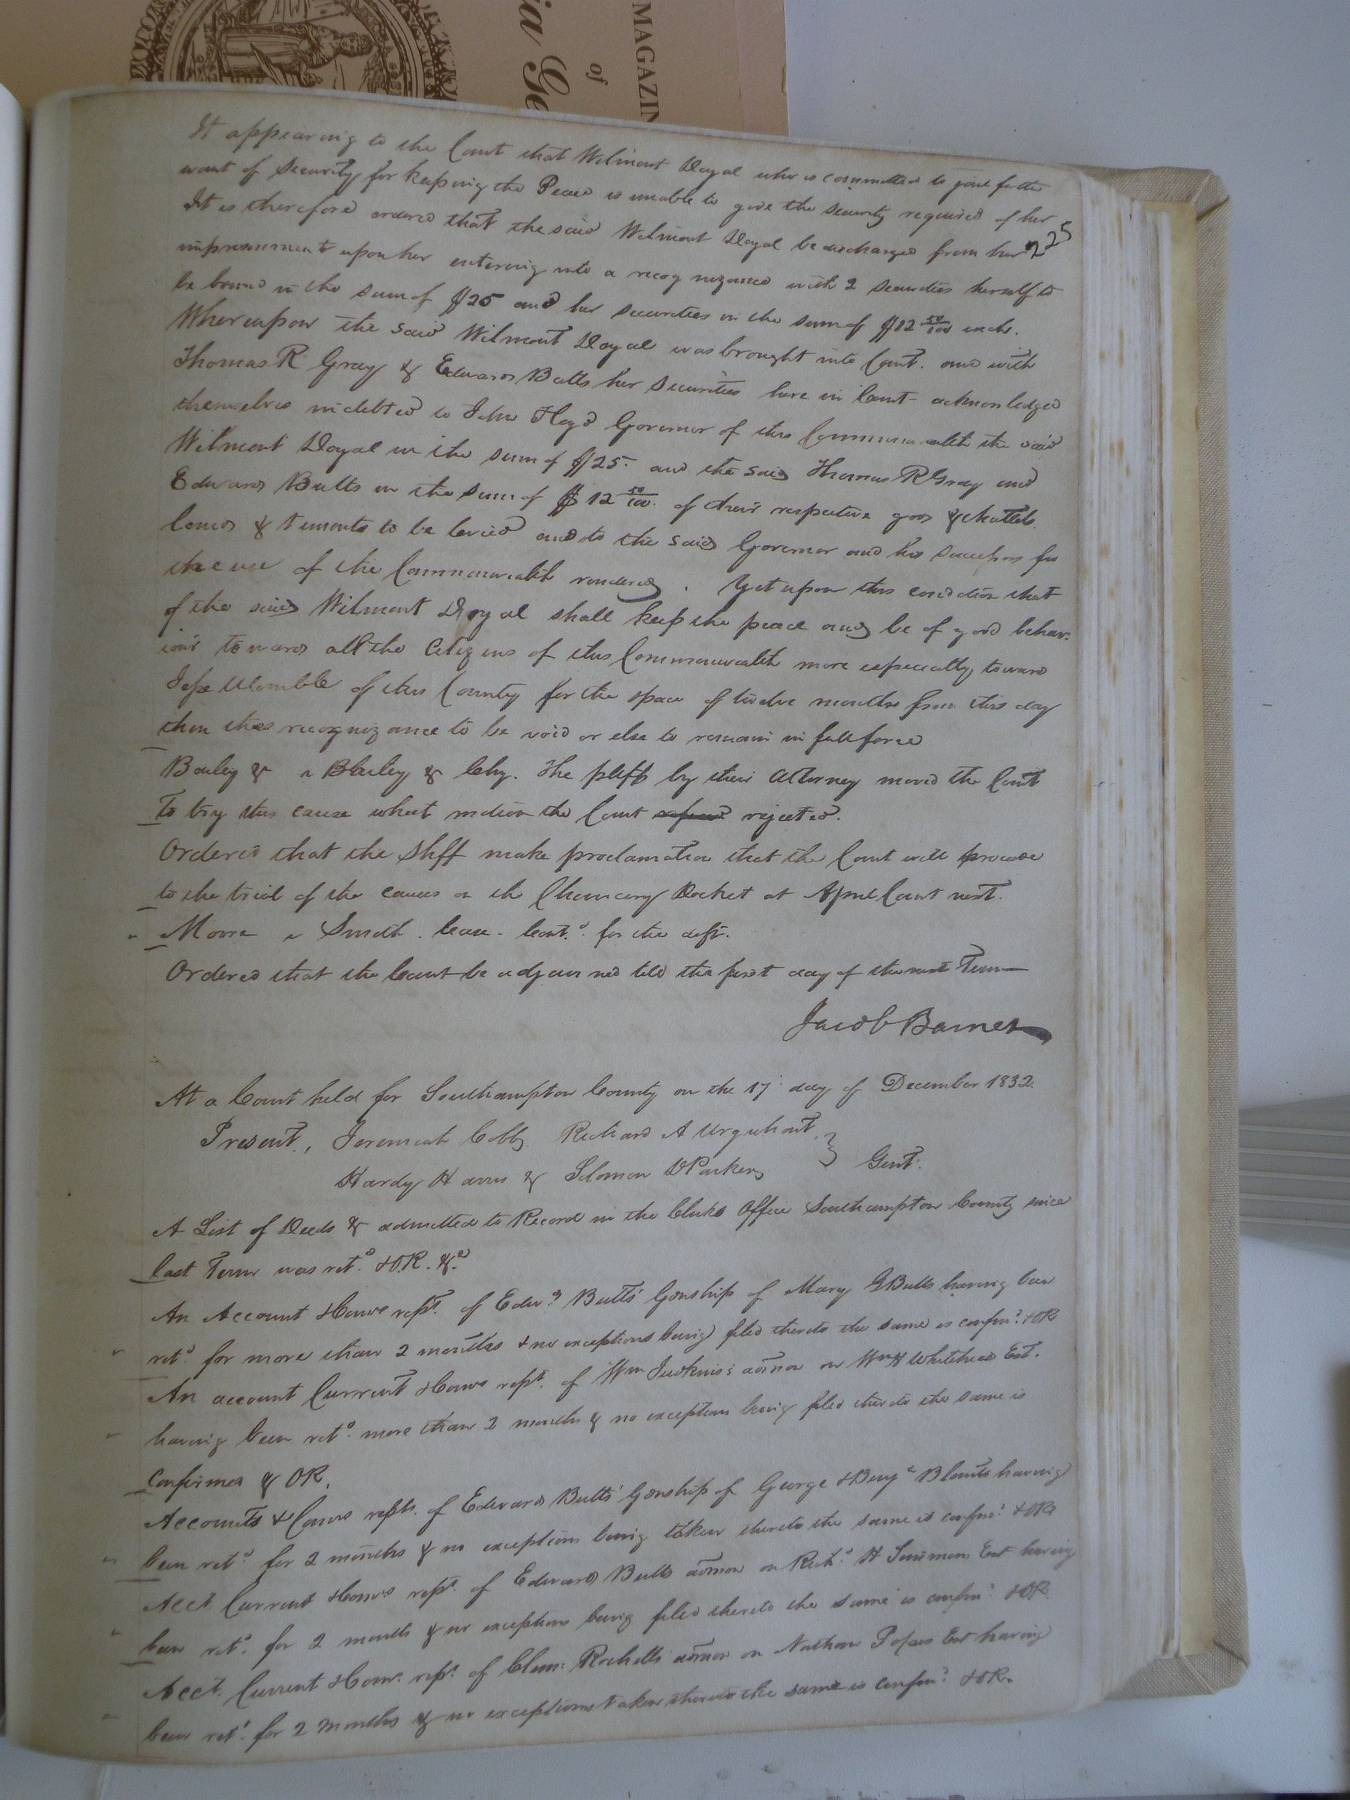 MAGAZIN
of
ia Ge
It appearing to the Court that Wilmont Doyal who is committed to jail for the
want of Security for keeping the Peace is unable to give the security required of her
225
It is therefore ordered that the said Wilmont Doyal be discharged from her
imprisonment upon her entering into a recognizance with 2 securities herself to
be bound in the sum of $25 and her securities in the sum of $12 50/100 each.
Whereupon the said Wilmont Doyal was brought into Court. and with
Thomas R Gray & Edward Butts her securities here in Court acknowledged
themselves indebted to John Floyd Governor of this Commonwealth the said
Wilmont Doyal in the sum of $25. and the said Thomas R Gray and
Edward Butts in the sum of $12 50/100. of their respective goods & chattels
lands & tenements to be levied and to the said Governor and his successors for
the use of the Commonwealth rendered. Yet upon this condition that
if the said Wilmont Doyal shall keep the peace and be of good behav-
iour towards all the Citizens of this Commonwealth more especially toward
Womble of this County for the space of twelve months from this day
then this recognizance to be void or else to remain in full force
Bailey & v Bailey & Chy. The pltff by their Attorney moved the Court
To try this cause which motion the Court rejected.
Ordered that the Shff make proclamation that the Court will proceed
to the trial of the causes on the Chancery Docket at April Court next.
Moore v Smith. Case. Cont.d for the deft.
Ordered that the Court be adjourned till the first day of the next Term
Jacob Barnes
At a Court held for Southampton County on the 17 day of December 1832
Present, Jeremiah Cobb, Richard A Urquhart }
Hardy Harris & Solomon D Parker Gent.
A List of Deeds & admitted to Record in the Clerks Office Southampton County since
last Term was ret.d & O.R. &.c
An Account & Coms rept. of Edw.d Butts' Gdnship of Mary G Butts having been
ret.d for more than 2 months & no exceptions being filed thereto the same is confm.d & OR
An account Current & Coms rept. of Wm Judkins's admon on Wm H Whitehead Est.
having been ret.d more than 2 months & no exceptions being filed thereto the same is
Confirmed & OR.
Accounts & Coms repts. of Edward Butts' Gdnship of George & Benj.a Blunts having
been ret.d for 2 months & no exceptions being taken thereto the same is confm.d & OR
Acct Current & Coms rept. of Edward Butts admon on Rich.d H Est having
been ret.d for 2 months & no exceptions being filed thereto the same is confm.d & OR
Acct. Current & Coms. rept. of Clem: Rochelle's admon on Nathan Popes Est having
been ret.d for 2 months & no exceptions taken thereto the same is confm.d & OR.